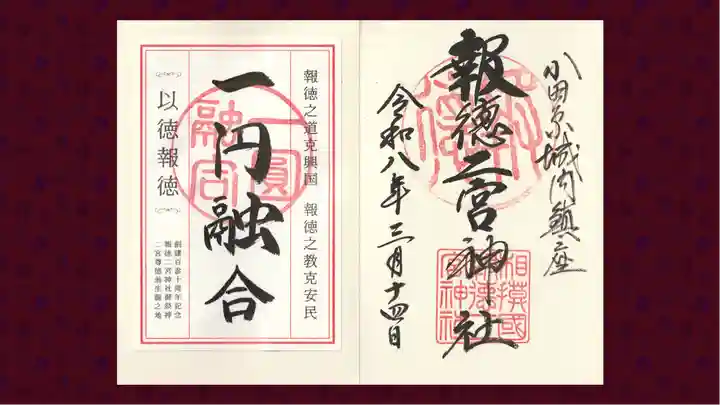 小田原城内鎮座
報徳二宮神社
相摸國
報徳二
宮神社
令和八年三月十四日
報徳之道克興国　報徳之教克安民
一円融合
一圓
融合
以徳報徳
創建百参十周年記念
報徳二宮神社御祭神
二宮尊徳翁生誕之地